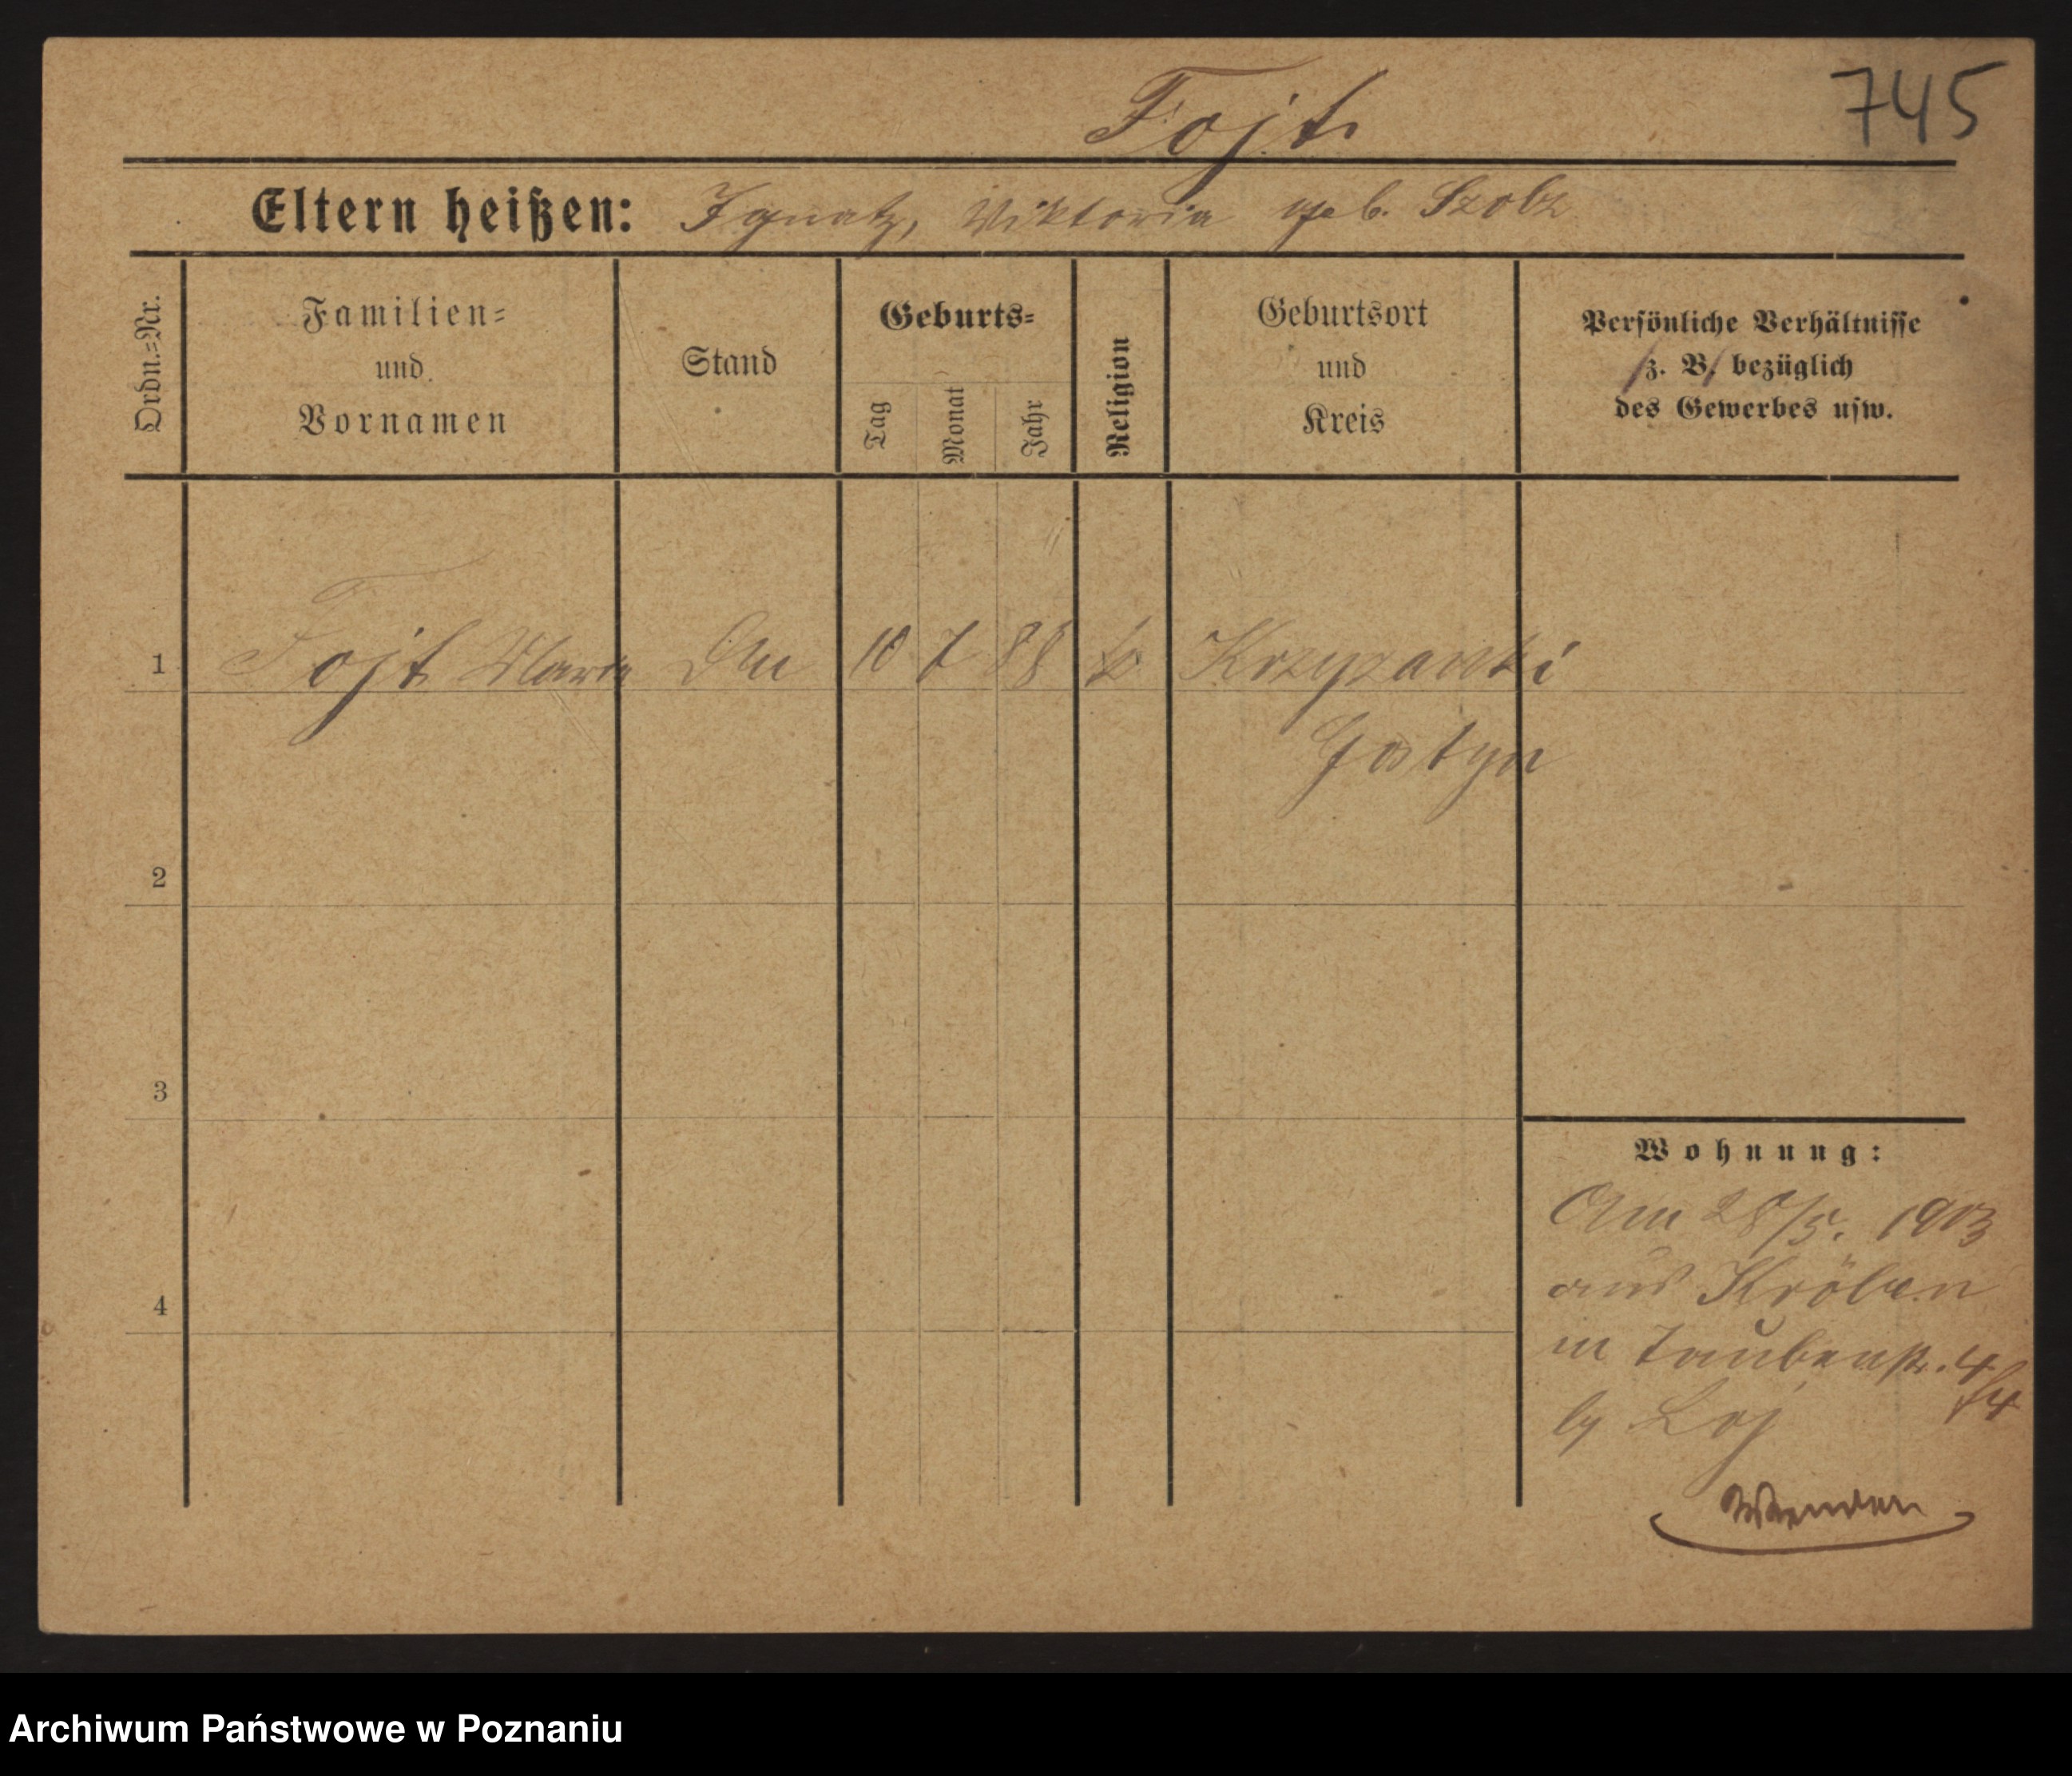 745
Fojt
Eltern heißen: Ignatz, Viktoria geb. Szobz
Ordn.=Nr.
Familien=
und
Vornamen
Stand
Geburts=
Tag
Monat
Jahr
Religion
Geburtsort
und
Kreis
Persönliche Verhältnisse
z. B. bezüglich
des Gewerbes usw.
1 Fojt Maria 10 7 88 k Krzyzanki
Gostyn
2
3
4
Wohnung:
Am 28/5. 1903
aus Kröben
in Taubenstr. 4
b/ Loj
Wenden
Archiwum Państwowe w Poznaniu